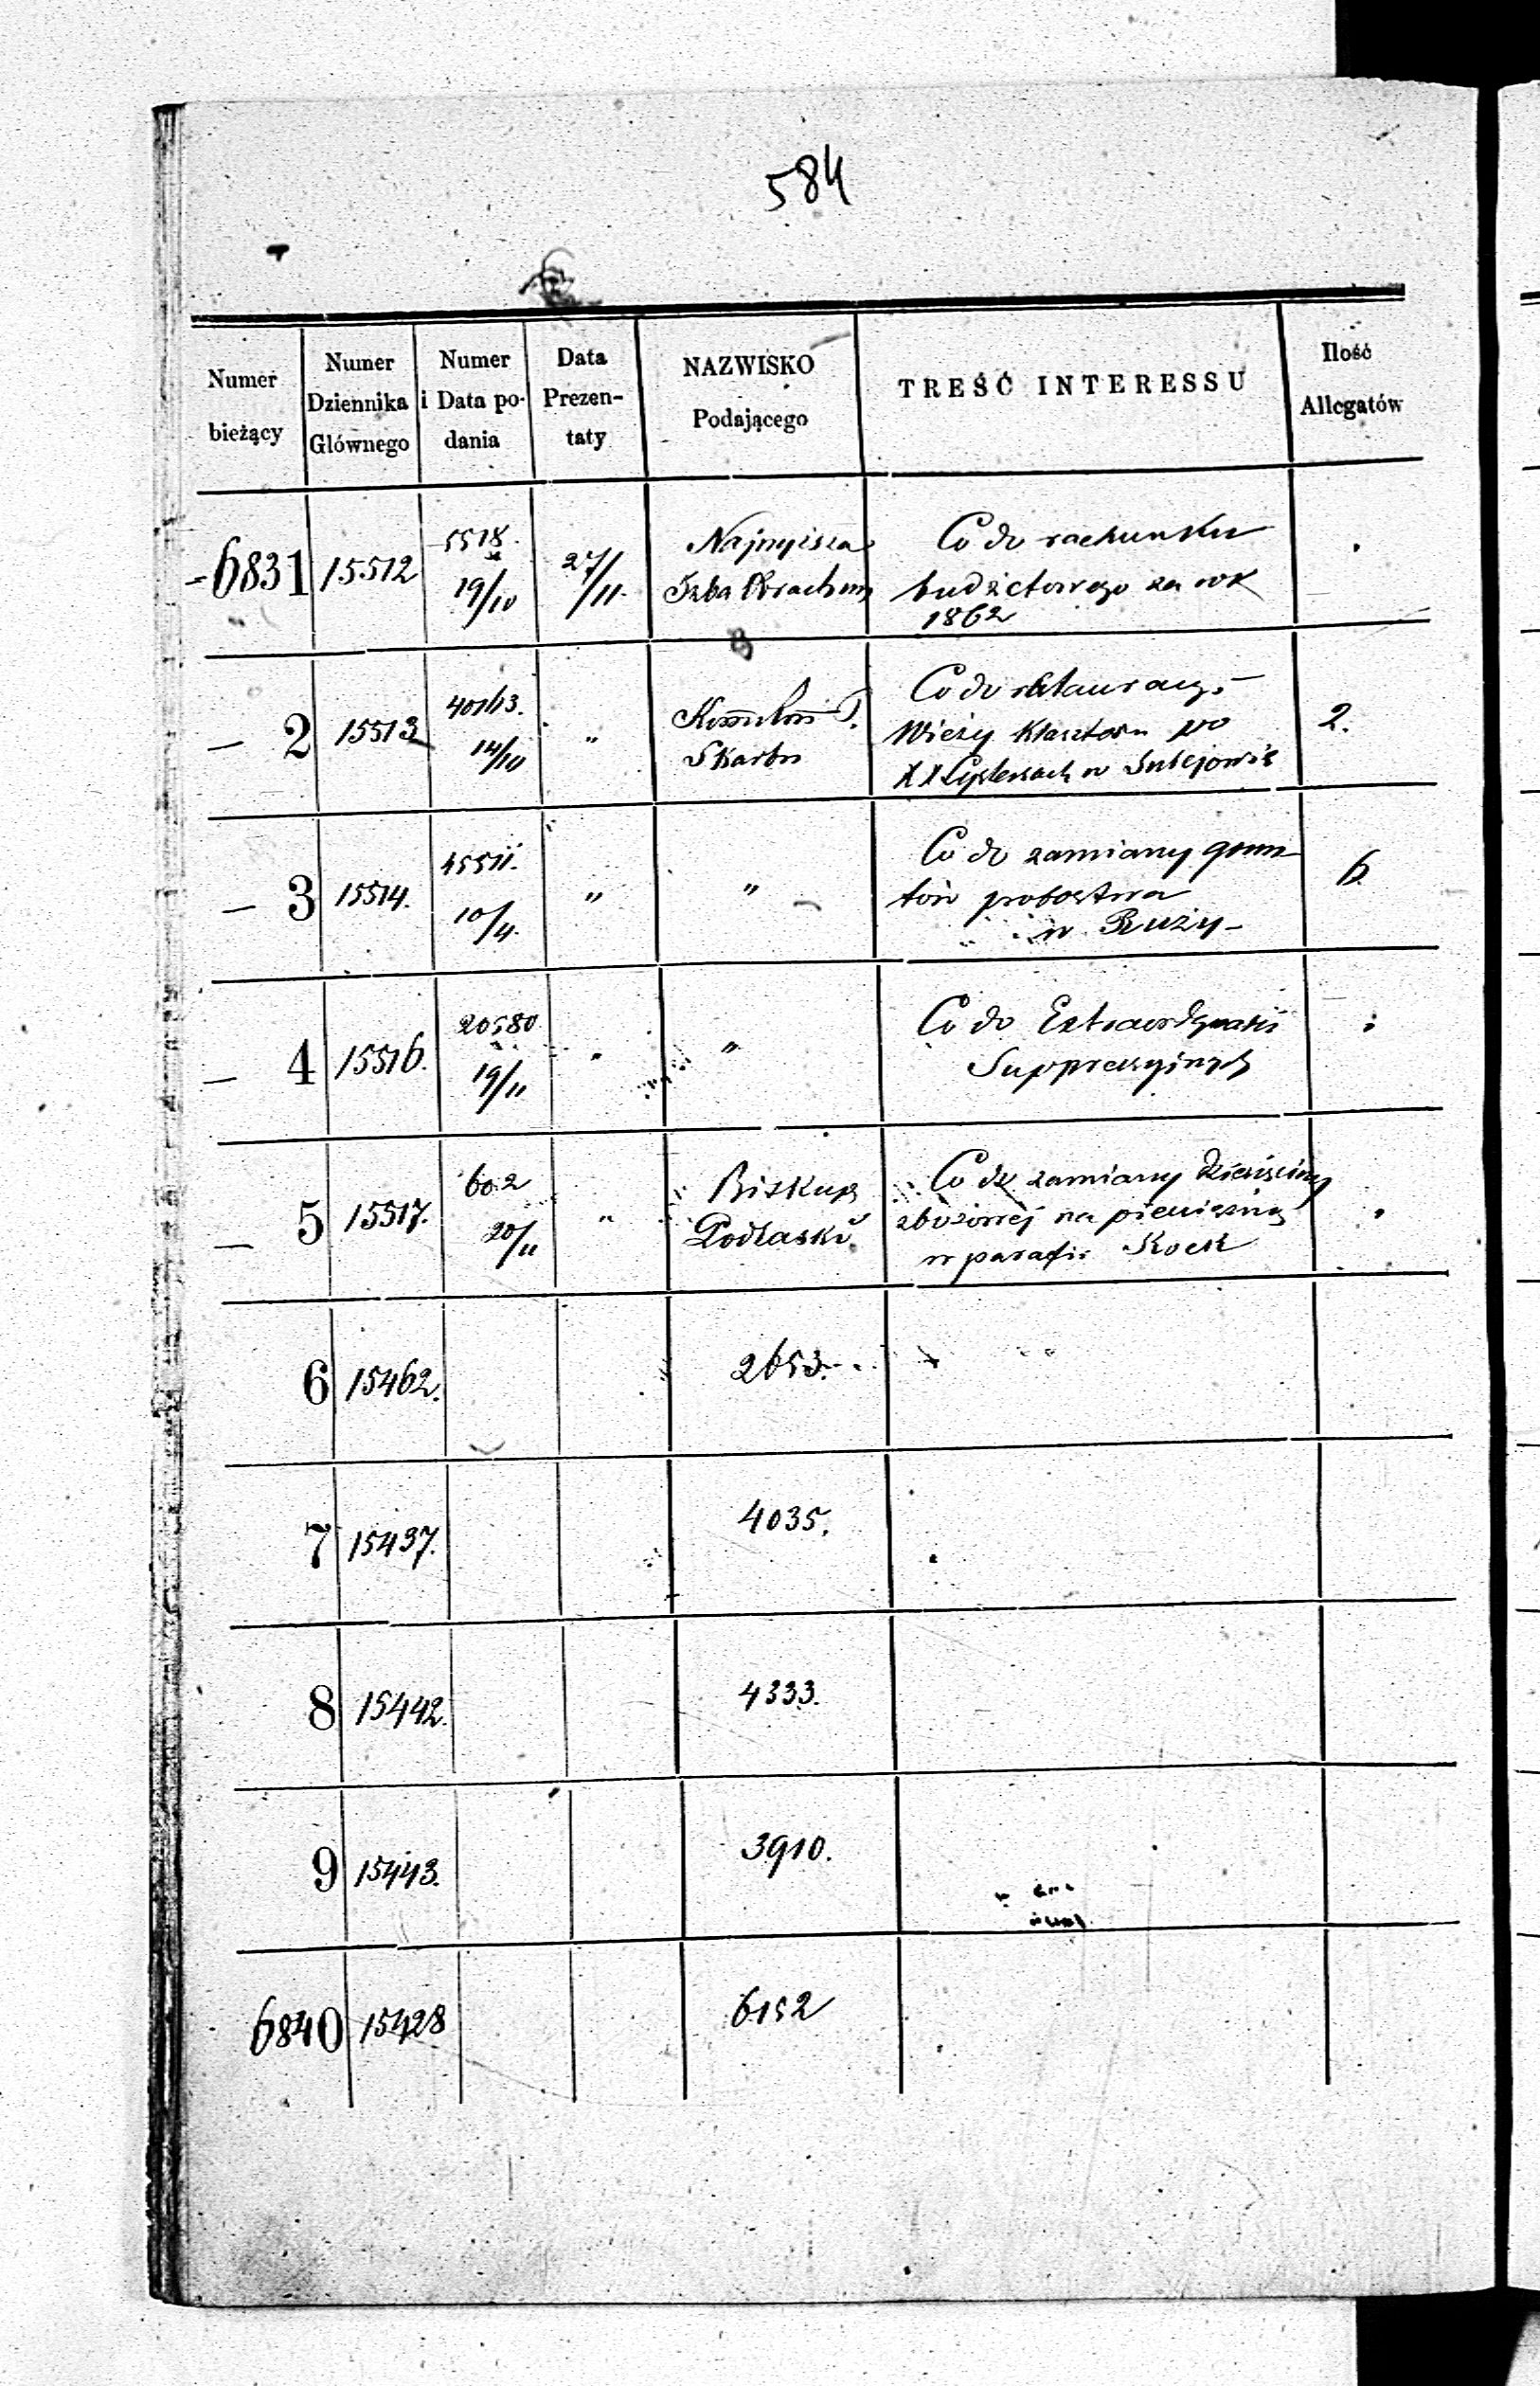 584
Numer bieżący | Numer Dziennika Głównego | Numer i Data podania | Data Prezentaty | NAZWISKO Podającego | TREŚĆ INTERESSU | Ilość Allegatów
6831 | 15512 | 5518. 19/10 | 27/11. | Najwyższa | Co do rachunku
Izba Obrachun | budżetowego za rok
1862
2 | 15513 | 40163. 14/10 | " | Skarbu | Co do restauracyi
Wieży Klasztoru po | 2.
XX Cystersach w Sulejowie
3 | 15514. | 45511. | " | " | Co do zamiany grun
tów probostwa | 6.
w Ruży
4 | 15516. | 20580 19/11 | " | " | Co do Extraordynarii
Suppressyjnych
5 | 15517. | 602 20/11 | " | Biskup | Co do zamiany dziesięciny
Podlaski | zbożowej na pieniężną
w parafii Kock
6 | 15462. | 2653.
7 | 15437. | 4035.
8 | 15442. | 4333.
9 | 15443. | 3910.
6840 | 15428 | 6152